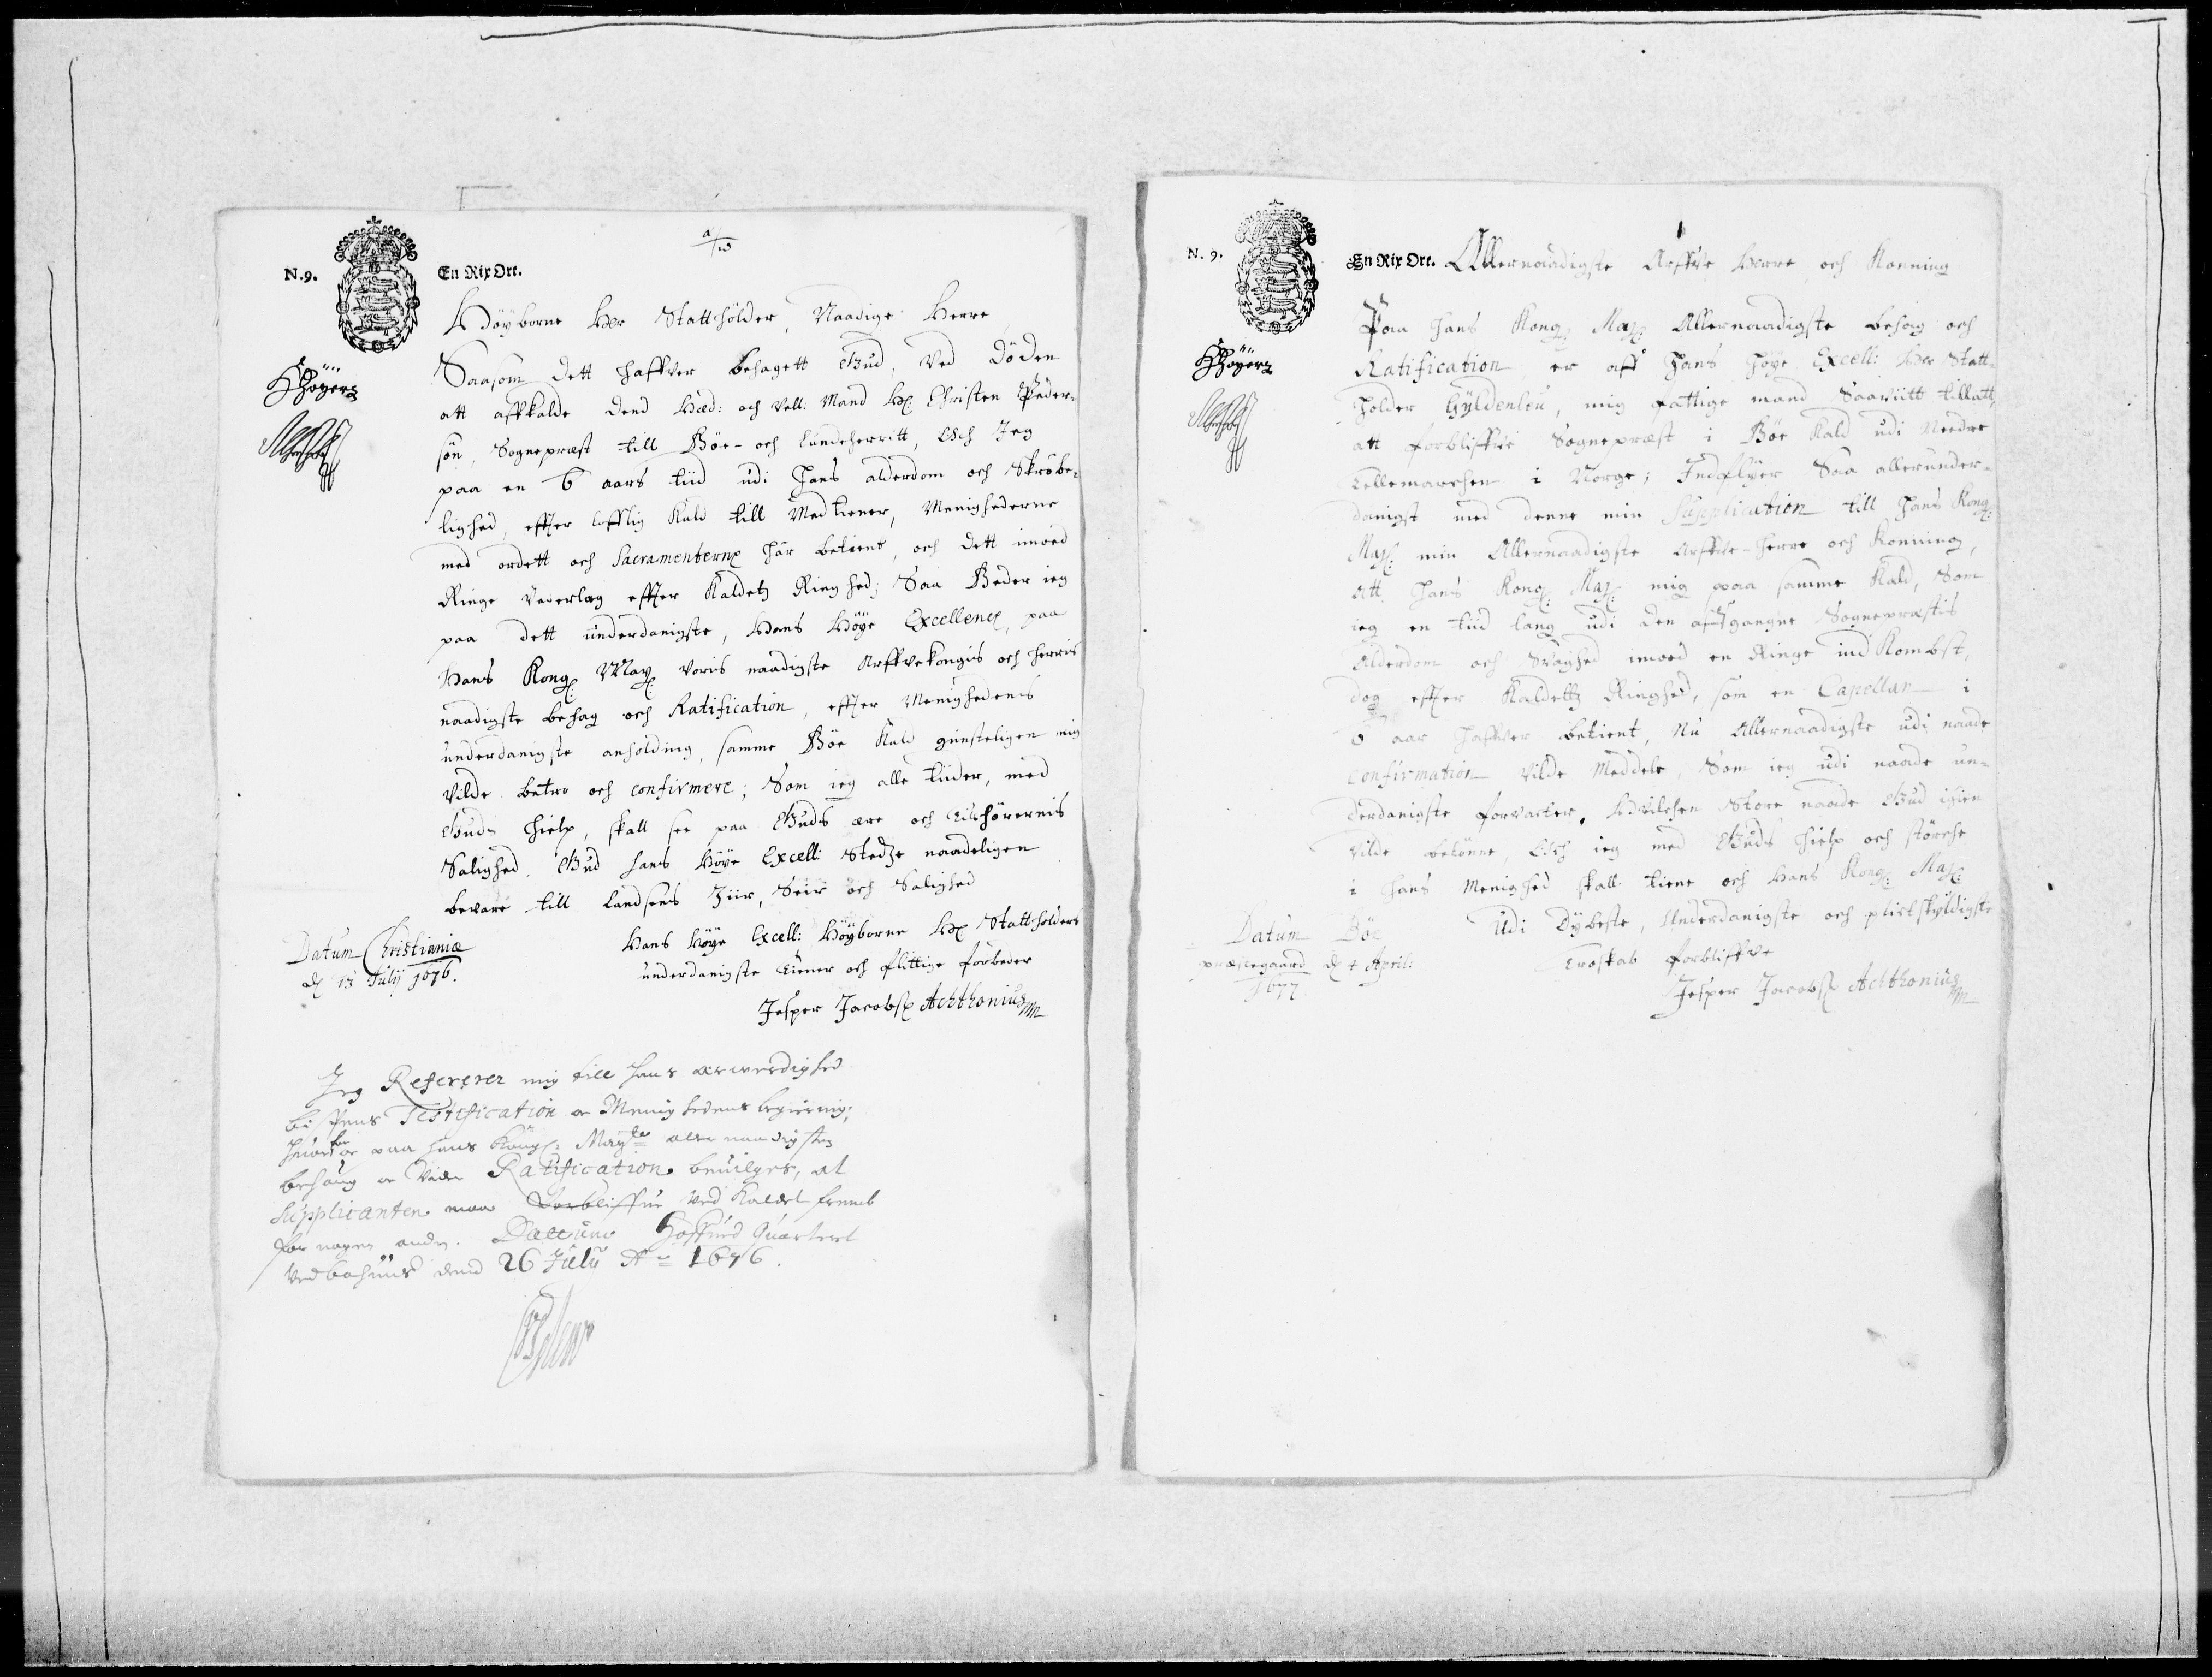 N.9.
En Rix Ort.
Höÿborne Her Stattholder, Naadige Herre
Saasom dett haffver behagett Gud, ved döden
att affkalde dend Hæd: och Vell: Mand Hr: Christen Peder-
sön, Sognepræst till Böe- och Lundeherritt, och Jeg
paa en 6 aars tiid udi hans alderdom och Skröbe-
lighed, effter lofflig Kald till Medtiener, Menighederne
med ordett och Sacramenterne har betient, och dett imod
Ringe Vederlag effter Kaldetz Ringhed; Saa Beder ieg
paa dett underdanigste, Hans Höÿe Excellence, paa
Hans Kong: Maÿ: voris naadigste Arffvekongis och herris
naadigste behag och Ratification, effter Menighedens
underdanigste anholding, samme Böe Kald gunsteligen mig
vilde betro och confirmere; Som ieg alle tiider, med
Guds hielp, skall see paa Guds ære och Tilhörernis
Salighed. Gud hans Höÿe Excell: Stedze naadeligen
bevare till Landsens Ziir, Seir och Salighed
Datum Christianiæ
d: 13 Julÿ 1676.
Hans höÿe Excell: Höÿborne Hr: Stattholders
underdanigste tiener och flittige forbeder
Jesper Jacobs: Achthonius
Jeg Refererer mig till hans ærwerdighed
bispens Testification oc Menighedens begiering;
huorfor oc paa hans Kong: Maytz allernaadigste
behaug oc videre Ratification beuilges, at
Supplicanten maa forbliffue ved Kaldet fremb
for nogen anden. Dattum Hoffued Quarteret
ved Bahuus dend 26 Julÿ Ao 1676.
N. 9.
En Rix Ort.
Allernaadigste Arffve Herre och Konning
Paa hans Kong: Maj: Allernaadigste behag och
Ratification, er aff hans höÿe Excell: Her Statt-
holder Gÿldenleu, mig fattige mand Saaviitt tillatt,
att forbliffve Sognepræst i Böe Kald udi Needre
Tellemarchen i Norge; Indflÿer Saa allerunder-
danigst med denne min Supplication till hans Kong:
Maj: min Allernaadigste Arffve-herre och Konning,
att hans Kong: Maj: mig paa samme Kald, Som
ieg en tiid lang udi den affgangne Sognepræstis
Alderdom och Svaghed imod en Ringe indKombst,
dog effter Kaldettz Ringhed, som en Capellan i
6 aar haffver betient, Nu Allernaadigste udi naade
Confirmation vilde Meddele, Som ieg udi naade un-
derdanigste forvarter, hvilchen Store naade Gud igien
vilde belönne, och ieg med Guds hielp och störche
i hans Menighed skall tiene och Hans Kong: Maj:
Udi Dÿbeste, Underdanigste och plictskÿldigste
Troskab forbliffve
Datum Böe
præstegaard d: 4 April:
1677
Jesper Jacobs: Achthonius